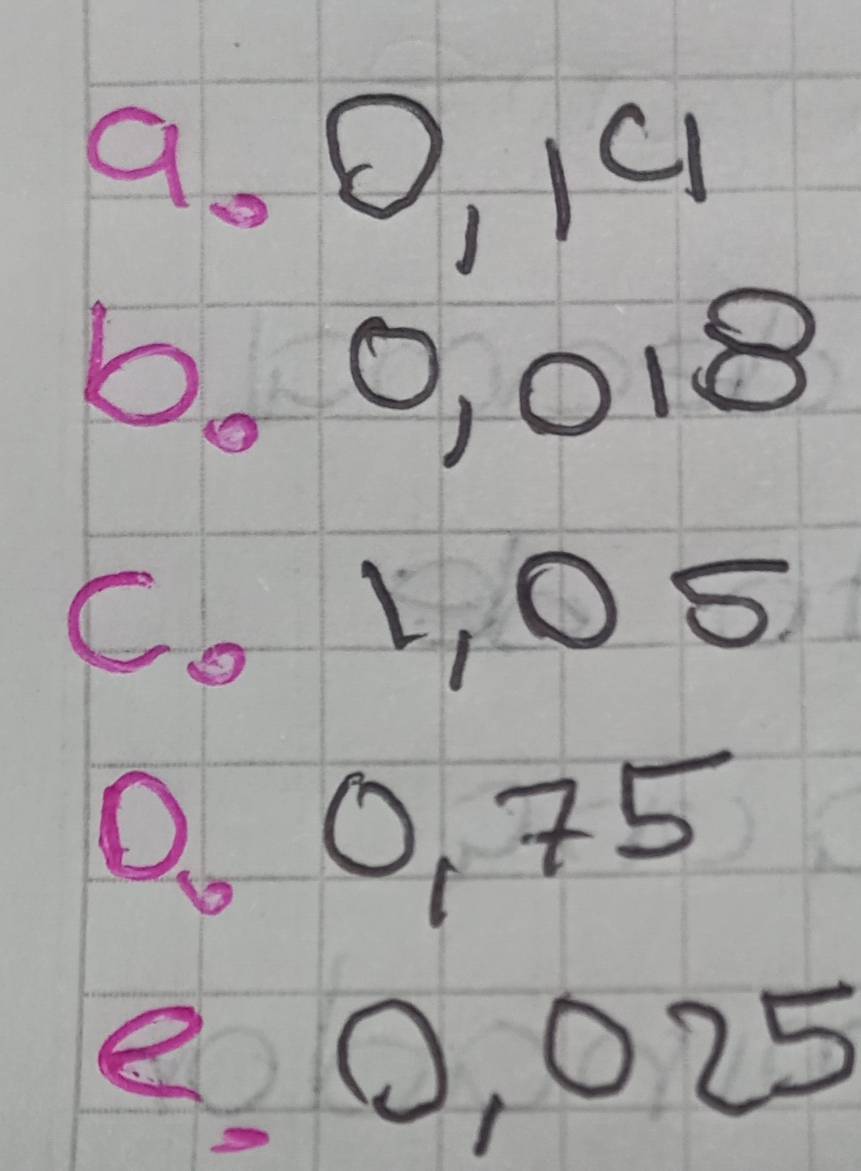 a. 0,14
b. 0,018
c. 1,05
D. 0,75
e. 0,025